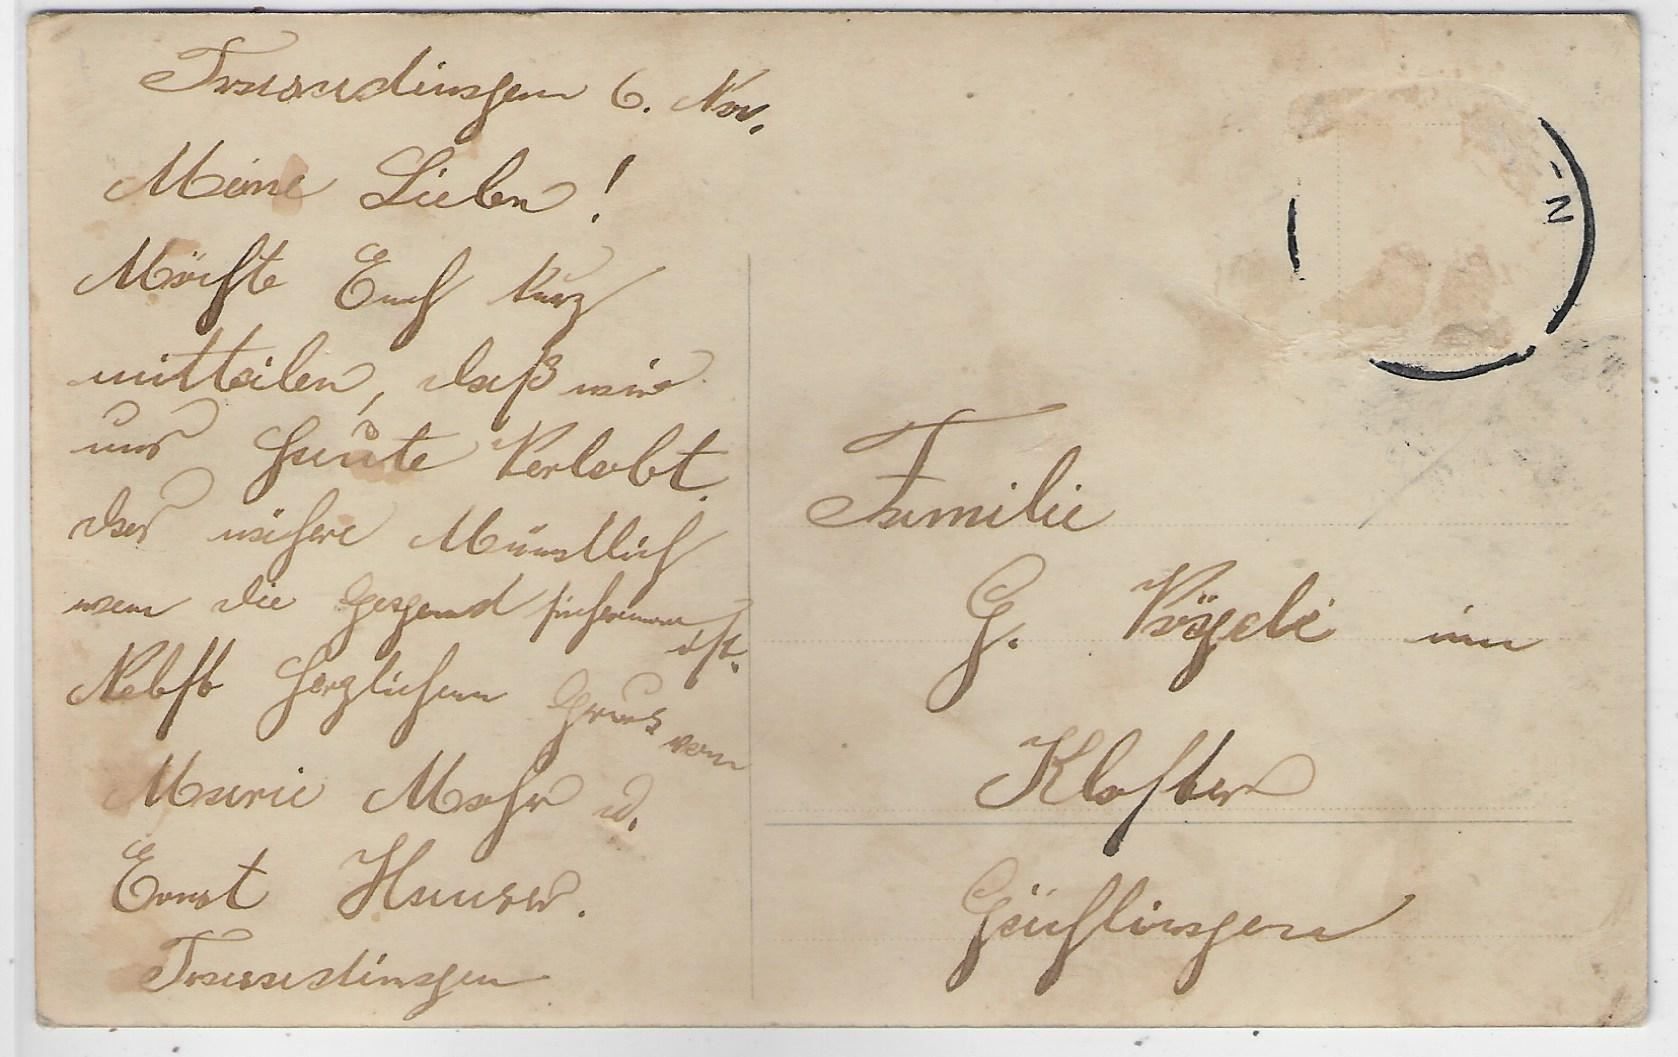 Trasadingen 6. Nov.
Meine Lieben!
Möchte Euch kurz
mitteilen, daß wir
uns heute Verlobt.
das nähere Mündtlich
wen die Gegend
ist.
Nebst herzlichem Gruss
von
Marie Mahr u.
Ernst Hauser.
Trasadingen
Familie
G. Vögeli im
Kloster
Gächlingen